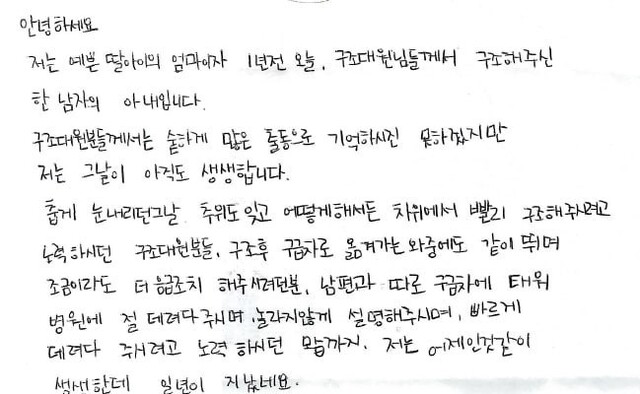 안녕하세요
저는 예쁜 딸아이의 엄마이자 1년전 오늘, 구조대원님들께서 구조해주신
한 남자의 아내입니다.
구조대원분들께서는 숱하게 많은 출동으로 기억하시진 못하겠지만
저는 그날이 아직도 생생합니다.
춥게 눈내리던그날 추위도 잊고 어떻게해서든 차위에서 빨리 구조해주시려고
노력하시던 구조대원분들, 구조후 구급차로 옮겨가는와중에도 같이 뛰며
조금이라도 더 응급조치 해주시려던분, 남편과 따로 구급차에 태워
병원에 절 데려다주시며 놀라지않게 설명해주시며, 빠르게
데려다 주시려고 노력하시던 모습까지. 저는 어제인것같이
생생한데 일년이 지났네요.